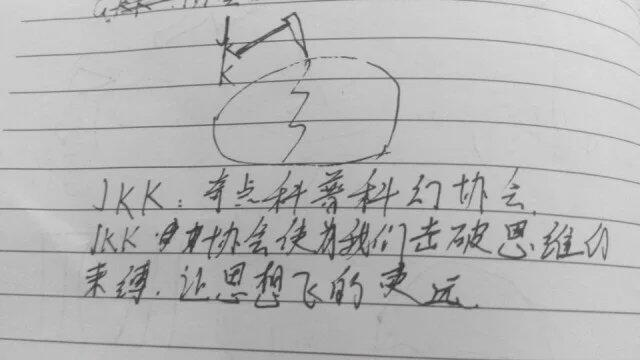 JK
K
JKK:奇点科普科幻协会
JKK 协会使为我们击破思维的
束缚.让思想飞的更远.